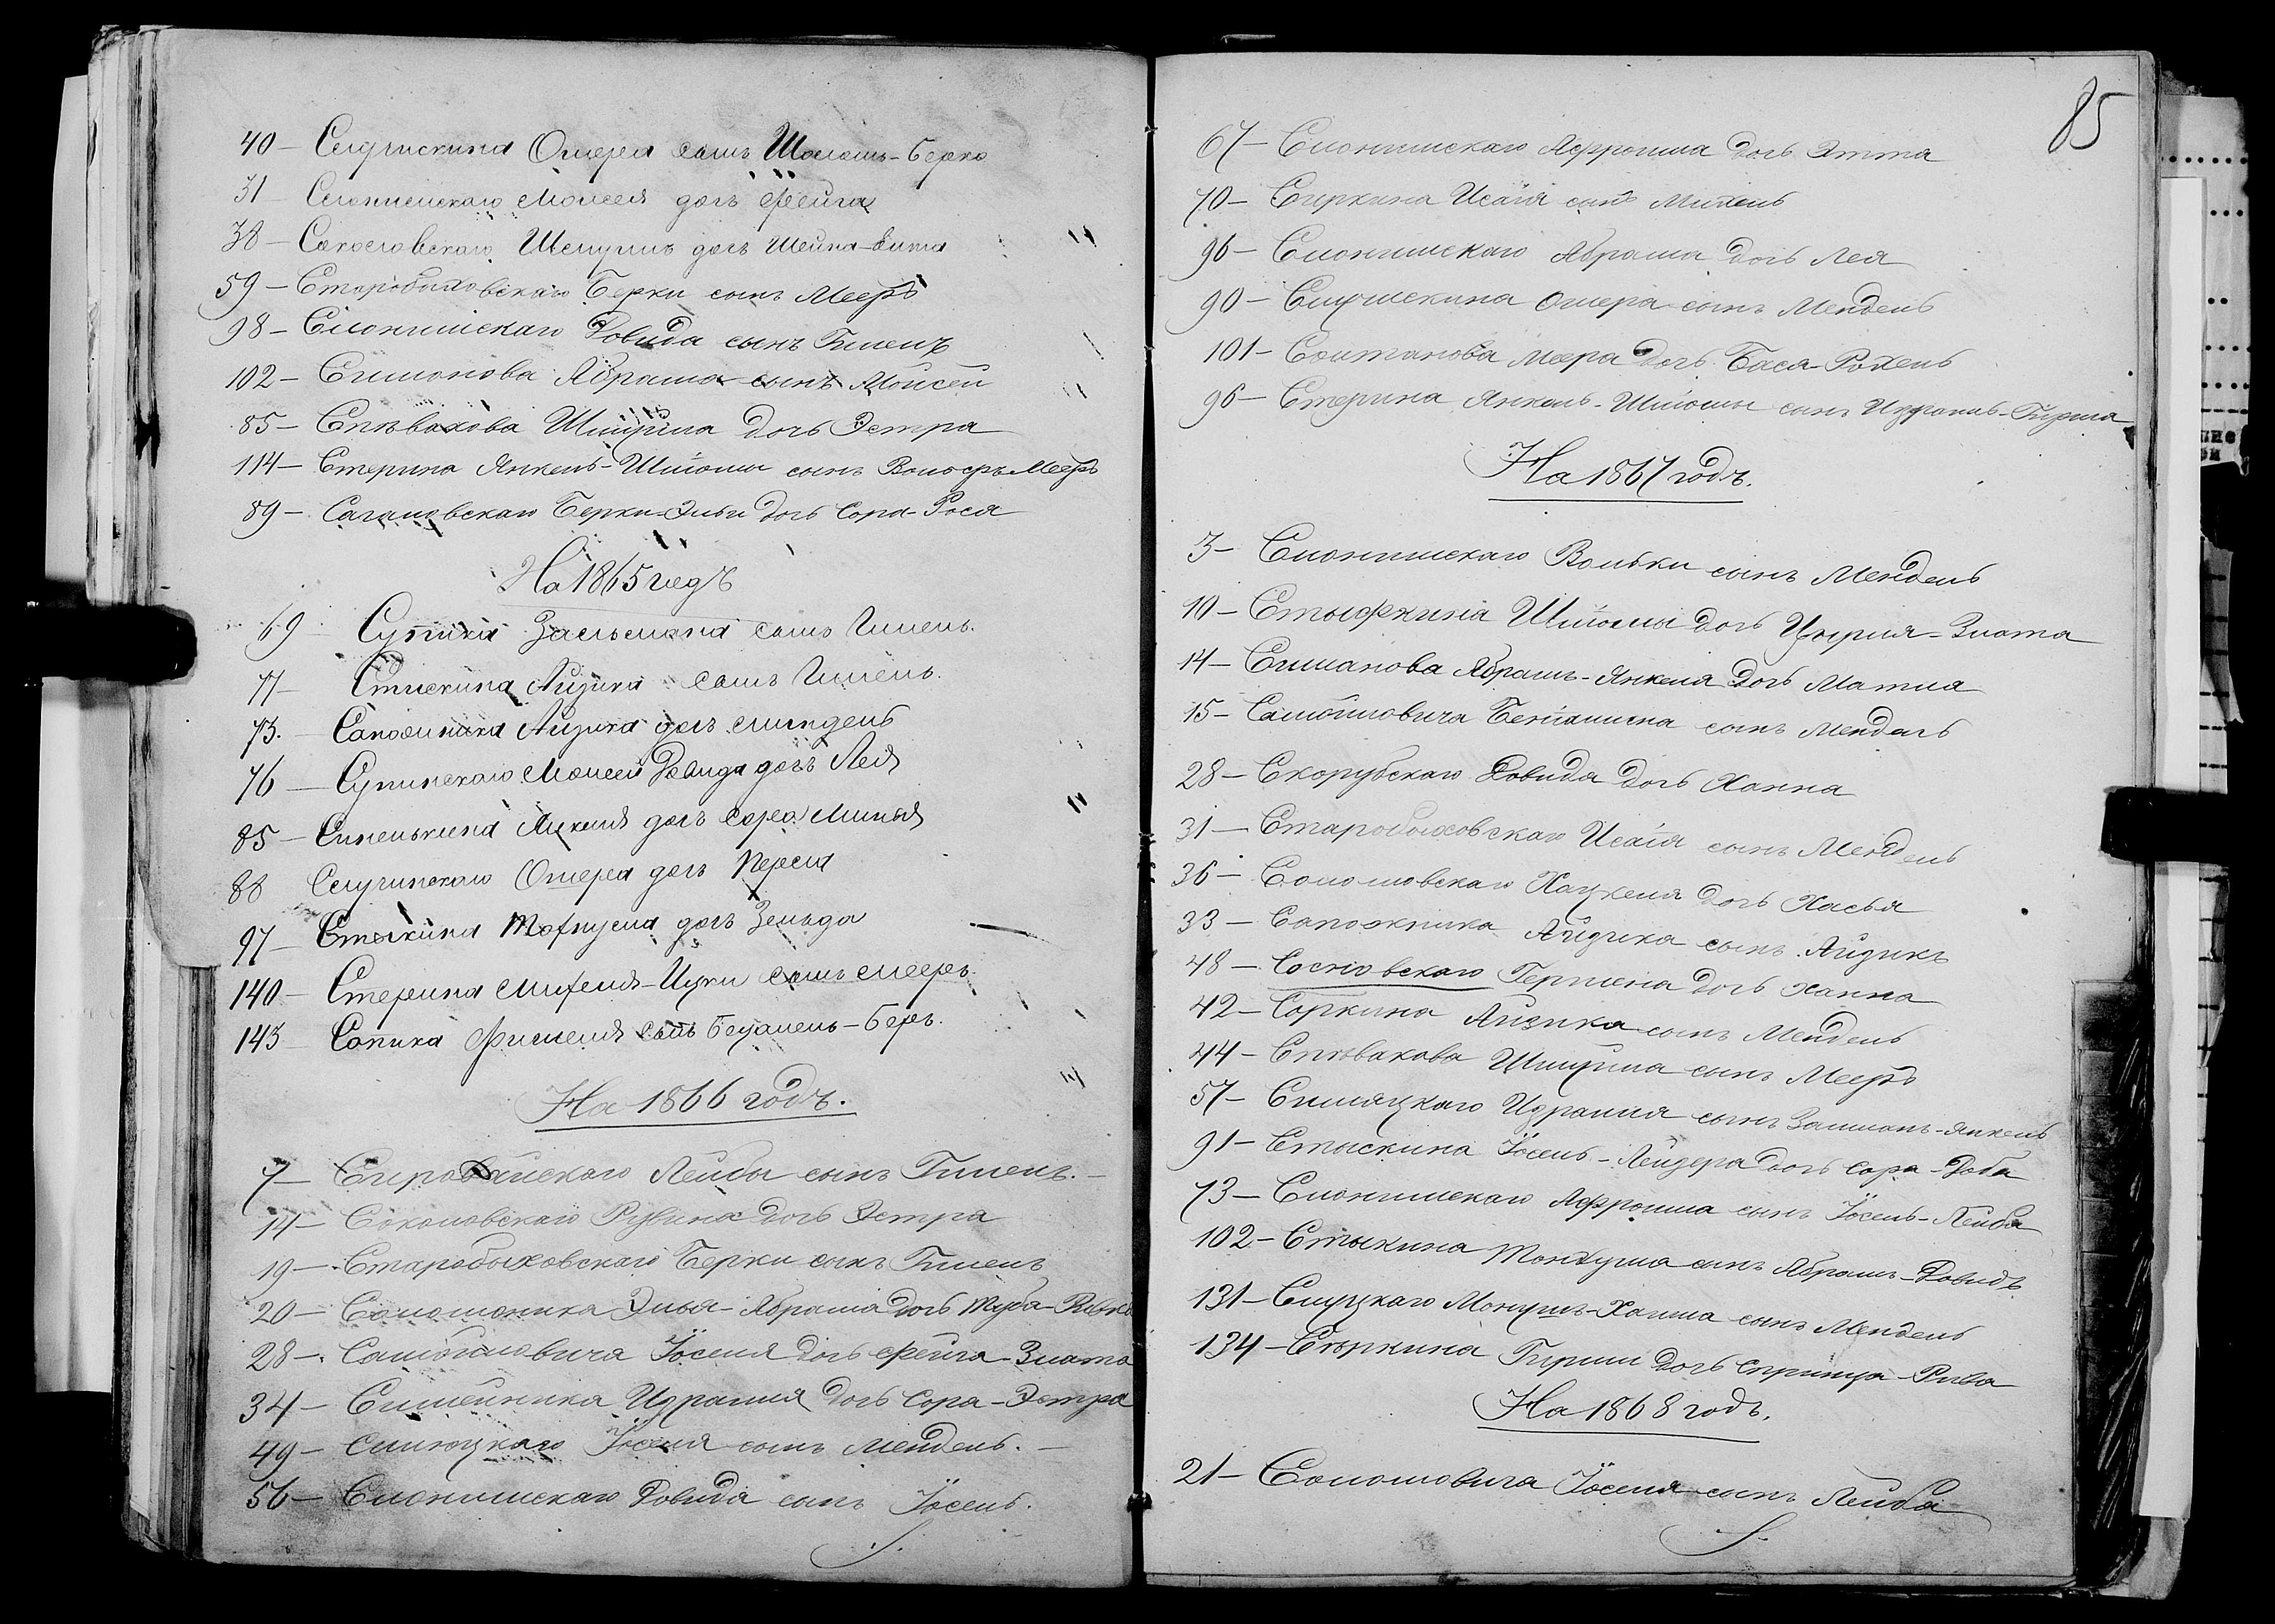 40 – Слушкина Ошера сынъ Шоломъ-Берко
31 – Слонимскаго Моисея дочь Фейга
38 – Соколовскаго дочь Шейна-
59 – Старобыховскаго Берки сынъ Мееръ
98 – Слонимскаго Довида сынъ Гилелъ
102 – Симонова Абрама сынъ Моисей
85 – Спѣвакова Шмуйла дочь Эстра
114 – Стерина Янкель-Шліомы сынъ Вольфъ-Мееръ
89 – Сагаловскаго Берки-Эльи дочь Сора-Рося
На 1865 годъ
69 – Супика Зальмана сынъ Гилель.
71 – Айзика сынъ Гилель.
73. – Сапожника Айзика дочь Миндель
76 – Супинскаго Моисей Довида дочь Лея
85 – дочь Сора Минья
88 Ошера дочь Переля
97 – Стыкина дочь Зельда
140 – Стерина Михеля-Ицки сынъ Мееръ.
143 – Сапика Фишеля сынъ -Беръ.
На 1866 годъ.
7 – Лейбы сынъ Гилелъ. –
14 – Соколовскаго Рувина дочь Эстра
19 – Старобыховскаго Берки сынъ Гилелъ
20 – Соломоника Элья-Абрама дочь Туба-
28 –. Самойловича Іоселя дочь Фейга-Злата
34 – Израиля дочь Сора-Эстра
49 – Іоселя сынъ Мендель. –
56 – Слонимскаго Довида сынъ Іосель.
85
67 – Слонимскаго Афроима дочь Этта
70 – Сиркина Исаія сынъ Михель
96 – Слонимскаго Абрама дочь Лея
90 – Слушскина Ошера сынъ Мендель
101 – Солтанова Меера дочь Бася-Рохель
96 – Стерина Янкель-Шліомы сынъ Израиль-Гирша
На 1867 годъ.
3 – Слонимскаго Вольки сынъ Мендель
10 – Шліомы дочь Ципля-Злата
14 – Симанова Абрамъ-Янкеля дочь Матля
15 – Самойловича Беніамина сынъ Мендель
28 – Скорубскаго Довида дочь Ханна
31 – Старобыховскаго Исаія сынъ Мендель
36 – Соколовскаго Хацкеля дочь Хасья
33 – Сапожника Айзика сынъ Айзикъ
48 – Сосновскаго Гершена дочь Ханна
42 – Соркина Айзика сынъ Мендель
44 – Спѣвакова Шмуйла сынъ Мееръ
57 – Израиля сынъ Залманъ-Янкель
91 – Стыскина Іосель-Лейзера дочь Сора-Доба
73 – Слонимскаго Афроима сынъ Іосель-Лейба
102 – Стыкина сынъ Абрамъ-Довидъ
131 – Слуцкаго -Хаима сынъ Мендель
134 – Сѣркина Гирши дочь Сприпца-Рива
На 1868 годъ.
21 – Соломовича Іоселя сынъ Лейба